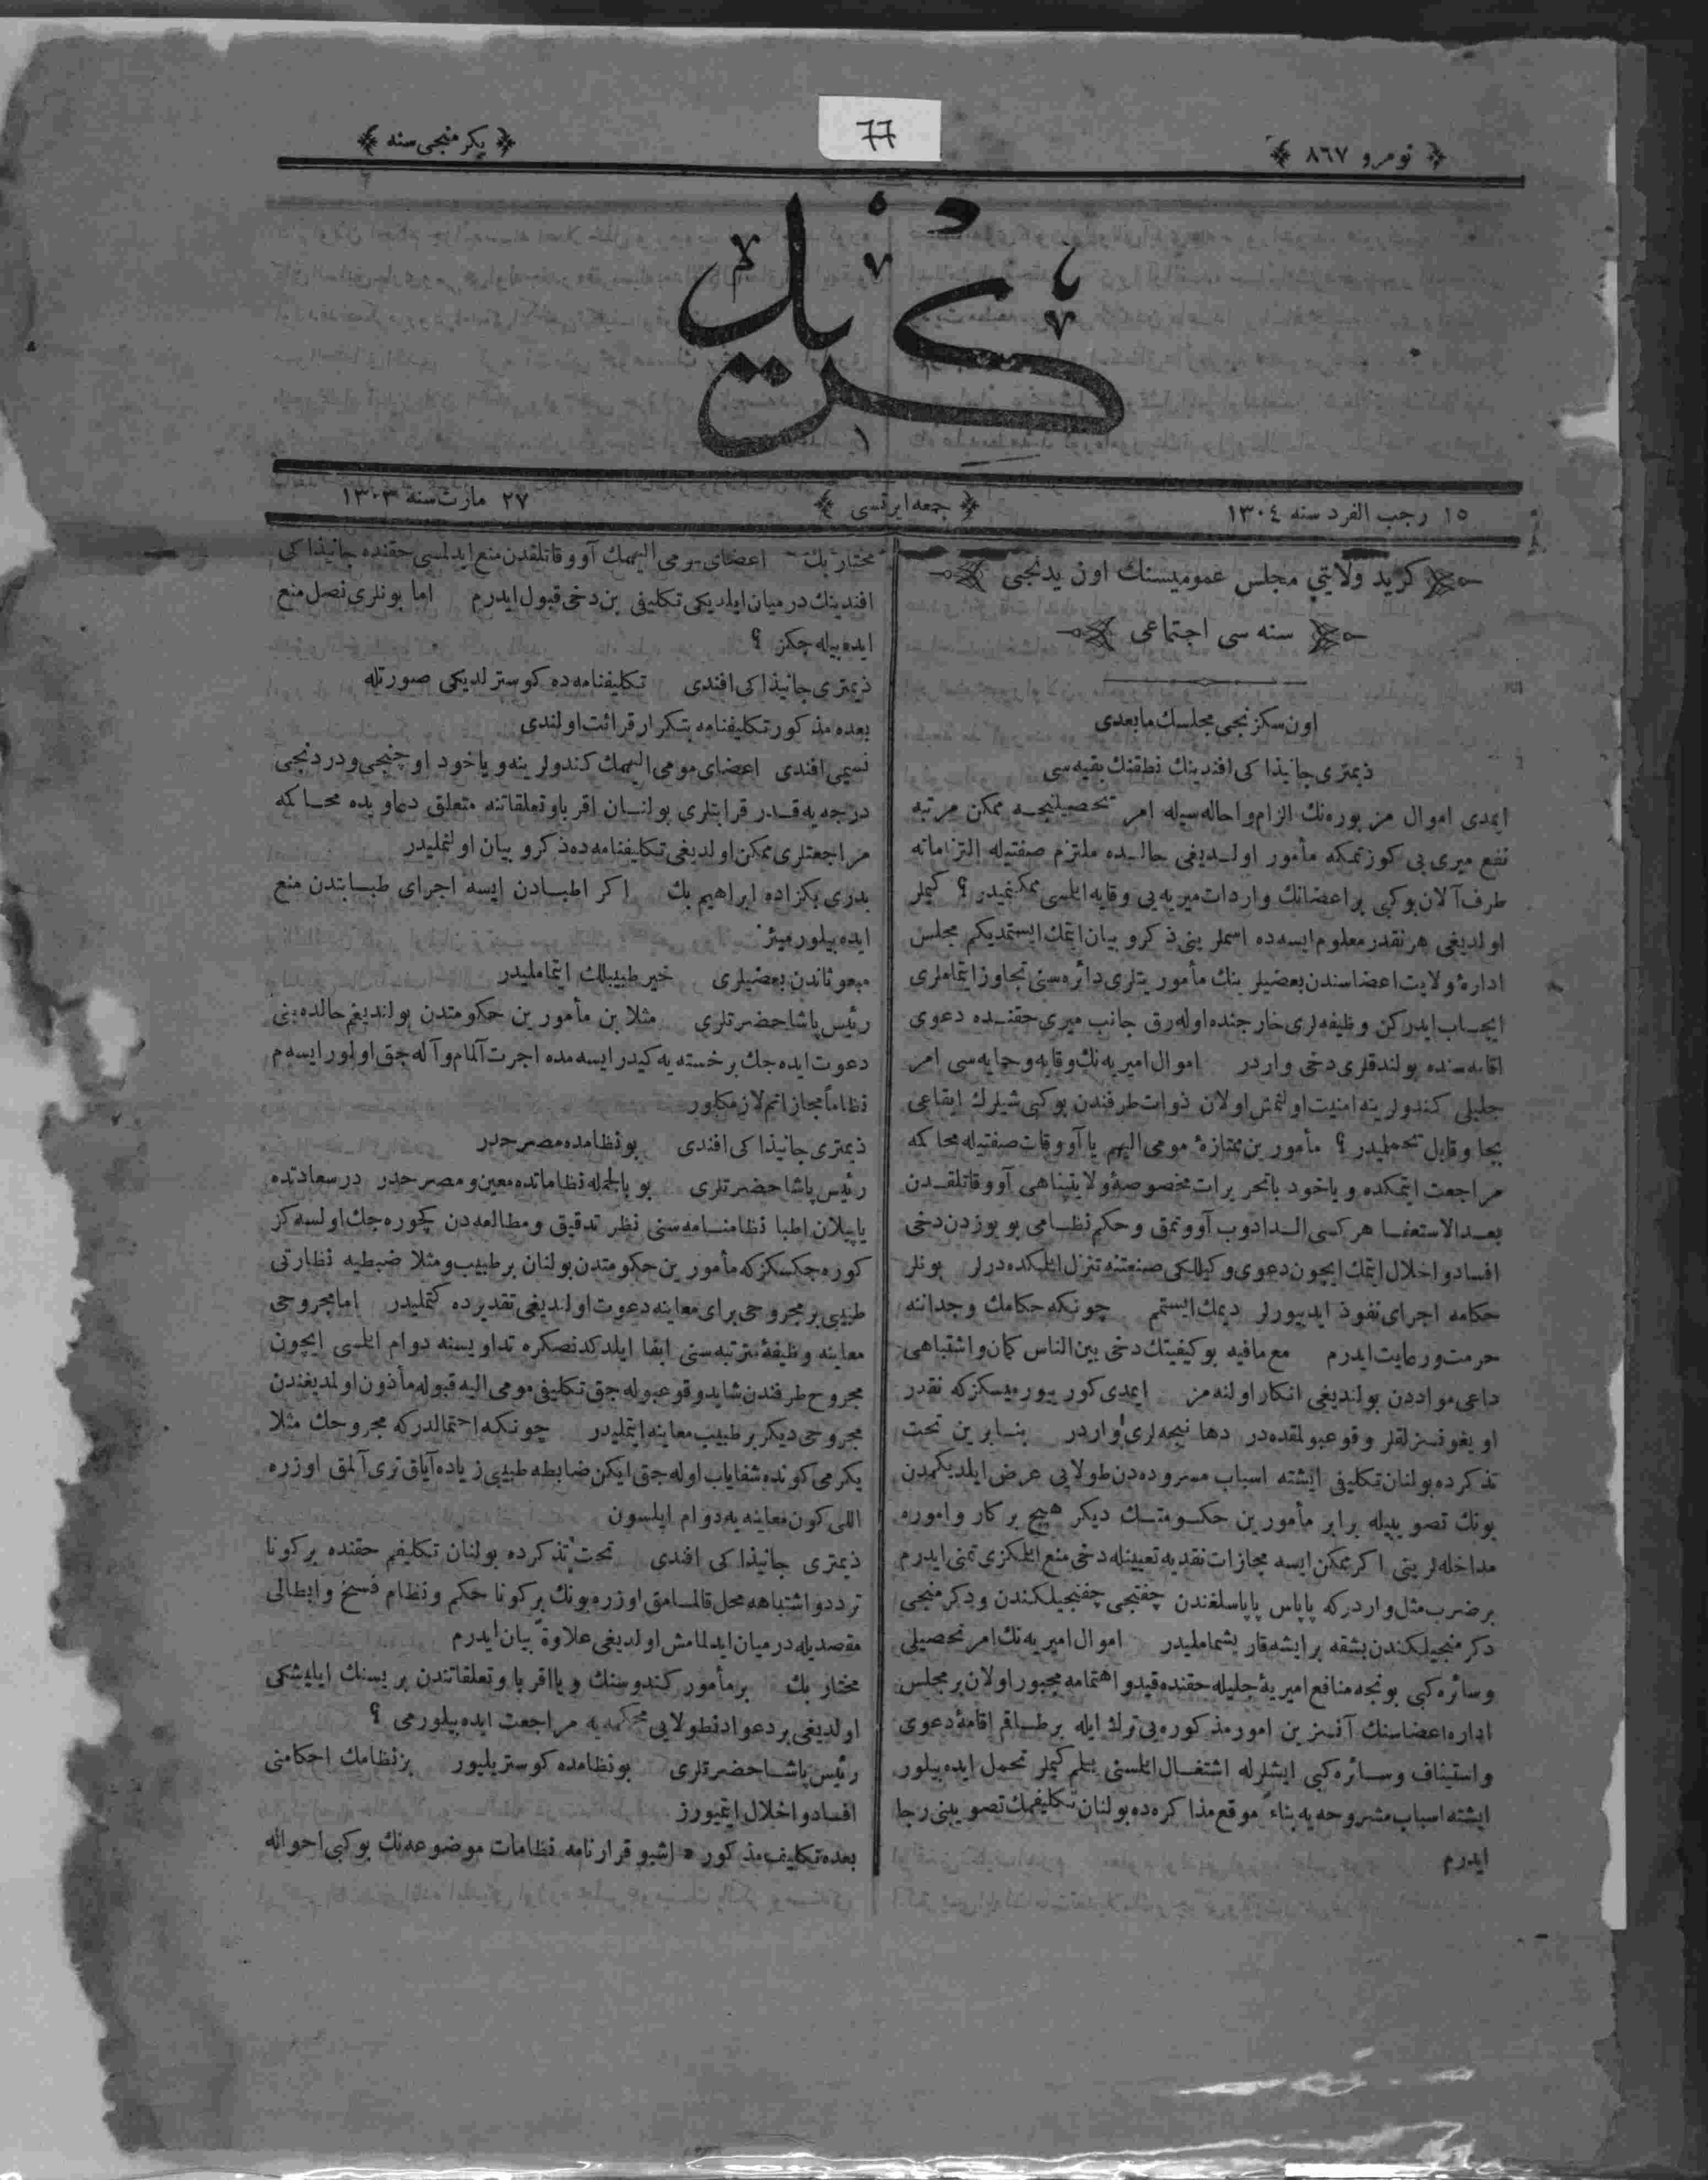 نومرو ٨٦٧
77
يكرمنجى سنه
كريد
١٥ رجب الفرد سنه ١٣٠٤
جمعه ايرتسى
٢٧ مارت سنه ١٣٠٣
كريد ولايتي مجلس عموميسنك اون يدنجى
سنه سى اجتماعى
اون سكزنجى مجلسك مابعدى
ذيمترى جانيذاكى افندينك نطقنك بقيه سى
ايمدى اموال مزبوره‌نك الزام واحاله سيله امر تحصيلنجه ممكن مرتبه
نفع ميرى يى كوزتمكه مأمور اولديغى حالده ملتزم صفتيله التزاماته
طرف آلان بوكبى بر اعضانك واردات ميريه يى وقايه ايلسى ممكنميدر ؟ كيملر
اولديغى هر نقدر معلوم ايسه ده اسملرينى ذكر و بيان ايتمك ايستمديكم مجلس
ادارهٔ ولايت اعضاسندن بعضيلرينك مأموريتلرى دائره سنى تجاوز ايتماملرى
ايجاب ايدركن وظيفه لرى خارجنده اوله رق جانب ميرى حقنده دعوى
اقامه سنده بولندقلرى دخى واردر اموال اميريه نك وقايه و حمايه سى امر
جليلى كندولرينه امنيت اولنمش اولان ذوات طرفندن بوكبى شيلرك ايقاعى
بجا و قابل تحمليدر ؟ مأمورين ممتازهٔ مومى اليهم يا آووقات صفتيله محاكمه
مراجعت ايتمكده و ياخود باتحريرات مخصوصهٔ ولايتپناهى آووقاتلقدن
بعد الاستعفا هركسى الدادوب آووتمق و حكم نظامى بو يوزدن دخى
افساد و اخلال ايتمك ايچون دعوى وكيللكى صنعتنه تنزل ايلمكده درلر بونلر
حكامه اجراى نفوذ ايدييورلر ديمك ايستمم چونكه حكامك وجداننه
حرمت و رعايت ايدرم مع مافيه بوكيفيتك دخى بين الناس كمان و اشتباهى
داعى موادن بولنديغى انكار اولنه مز ايمدى كوريبورميسكزكه نقدر
اويغونسزلقلر وقوعبولمقده در دها نيجه لرى واردر بنابرين تحت
تذكرده بولنان تكليفى ايشته اسباب مسروده دن طولايى عرض ايلديكمدن
بونك تصويبيله برابر مأمورين حكومتك ديكر هيچ بر كار و اموره
مداخله لرينى اكر ممكن ايسه مجازات نقديه تعيينيله دخى منع ايلمكزى تمنى ايدرم
بر ضرب مثل واردركه پاپاس پاپاسلغندن چفتجى چفتجيلكندن و دكرمنجى
دكرمنجيلكندن بشقه بر ايشه قاريشماملیدر اموال اميريه نك امر تحصيلى
وسائره كبى بونجه منافع اميريهٔ جليله حقنده قيد و اهتمامه مجبور اولان بر مجلس
اداره اعضاسنك آنفز بن امور مذكوره يى ترك ايله بر طاقم اقامهٔ دعوى
واستيناف وسائره كبى ايشلرله اشتغال ايلسنى بيلم كيملر تحمل ايده بيلور
ايشته اسباب مشروحه يه بناءً موقع مذاكره ده بولنان تكليفمك تصويبنى رجا
ايدرم
مختار بك اعضاى مومى اليهمك آووقاتلقدن منع ايدلمسى حقنده جانيذاكى
افندينك درميان ايلديكى تكليفى بن دخى قبول ايدرم اما بونلرى نصل منع
ايده بيله جكز ؟
ذيمترى جانيذاكى افندى تكليفنامه ده كوسترلديكى صورتله
بعده مذكور تكليفنامه بتكرار قرائت اولندى
نسيمى افندى اعضاى مومى اليهمك كندولرينه و ياخود اوچنجى و دردنجى
درجه يه قدر قرابتلرى بولنان اقربا و تعلقاتنه متعلق دعاويده محاكمه
مراجعتلرى ممكن اولديغى تكليفنامه ده ذكر و بيان اولنمليدر
بدرى بكزاده ابراهيم بك اكر اطبادن ايسه اجراى طبابتدن منع
ايده بيلورميز
مبعوثاندن بعضيلرى خير طبيبلك ايتماملیدر
رئيس پاشا حضرتلرى مثلا بن مأمورين حكومتدن بولنديغم حالده بنى
دعوت ايده جك بر خسته يه كيدر ايسه مده اجرت آلمام و آله جق اولور ايسه م
نظاماً مجازاتم لازمكلور
ذيمترى جانيذاكى افندى بو نظامده مصرحدر
رئيس پاشا حضرتلرى بو بالجمله نظاماتده معين و مصرحدر درسعادتده
ياپيلان اطبا نظامنامه سنى نظر تدقيق و مطالعه دن كچوره جك اولسه كز
كوره جكسكزكه مأمورين حكومتدن بولنان بر طبيب و مثلا ضبطيه نظارتى
طبيبى بر مجروحى براى معاينه دعوت اولنديغى تقديرده كتمليدر اما مجروحى
معاينه وظيفهٔ مترتبه سنى ايفا ايلدكدنصكره تداويسنه دوام ايلمسى ايچون
مجروح طرفندن شايد وقوعبوله جق تكليفى مومى اليه قبوله مأذون اولمديغندن
مجروحى ديكر بر طبيب معاينه ايتمليدر چونكه احتمالدركه مجروحك مثلا
يكرمى كونده شفاياب اوله جق ايكن ضابطه طبيبى زياده آياق ترى آلمق اوزره
اللى كون معاينه يه دوام ايلسون
ذيمترى جانيذاكى افندى تحت تذكرده بولنان تكليفم حقنده بركونا
تردد و اشتباهه محل قالمامق اوزره بونك بركونا حكم و نظام فسخ و ابطالى
مقصديله درميان ايدلمامش اولديغى علاوةً بيان ايدرم
مختار بك بر مأمور كندوسنك و يا اقربا و تعلقاتندن بريسنك ايليشكى
اولديغى بر دعوادنطولايى محكمه يه مراجعت ايده بيلورمى ؟
رئيس پاشا حضرتلرى بو نظامده كوستريليور بز نظامك احكامنى
افساد و اخلال ايتميورز
بعده تكليف مذكور « اشبو قرارنامه نظامات موضوعه نك بوكبى احواله